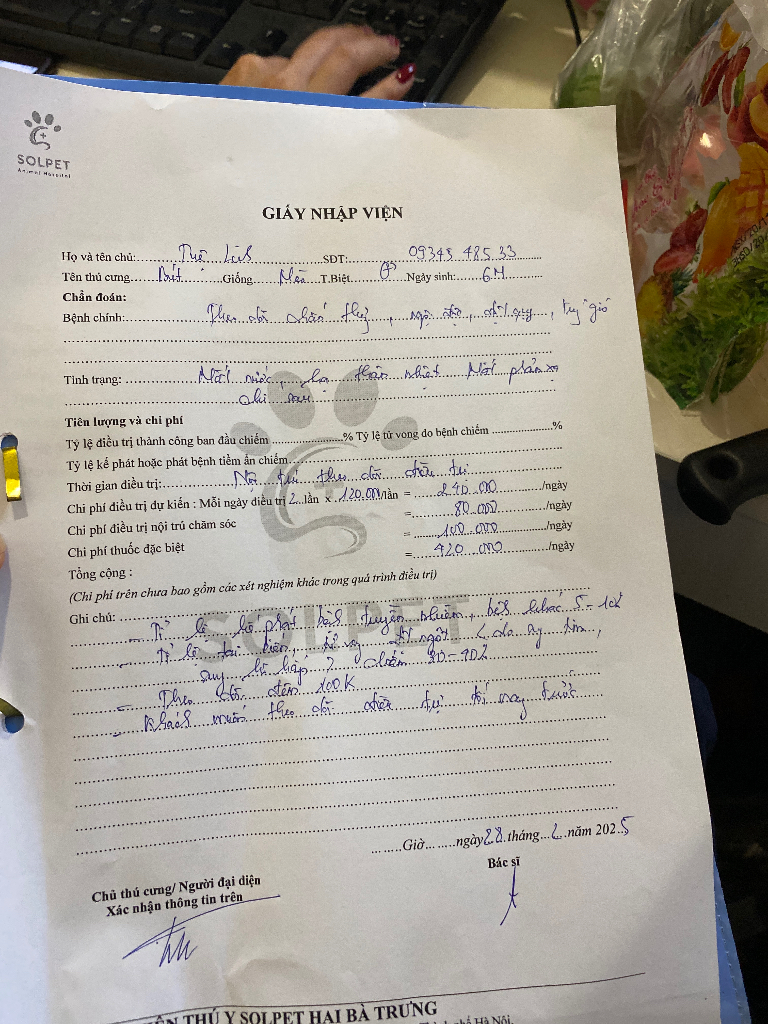 SOLPET
Animal Hospital
GIẤY NHẬP VIỆN
Họ và tên chủ: SĐT: 09345 485 33
Tên thú cưng Giống Mèo T.Biệt Ngày sinh: 6M
Chẩn đoán:
Bệnh chính: Theo dõi chấn thg, ngộ độc, đột quỵ,
Tình trạng: Mất nước, hạ thân nhiệt Mất phản xạ
chi sau
Tiên lượng và chi phí
Tỷ lệ điều trị thành công ban đầu chiếm % Tỷ lệ tử vong do bệnh chiếm %
Tỷ lệ kế phát hoặc phát bệnh tiềm ẩn chiếm
Thời gian điều trị: Nội trú theo dõi điều trị
Chi phí điều trị dự kiến : Mỗi ngày điều trị 2 lần x 120.000/lần = 240.000 /ngày
Chi phí điều trị nội trú chăm sóc = 80.000 /ngày
Chi phí thuốc đặc biệt = 100.000 /ngày
Tổng cộng : = 420.000 /ngày
(Chi phí trên chưa bao gồm các xét nghiệm khác trong quá trình điều trị)
Ghi chú: - Tỉ lệ kế phát bệh truyền nhiễm, bệh khác 5-10%
- Tỉ lệ tai biến, tử vg đột ngột do suy tim,
suy hô hấp chiếm 80-90%
- Theo dõi đêm 100K
- Khách muốn theo dõi điều trị tối nay trước
Giờ ngày 28 tháng 2 năm 2025
Chủ thú cưng/ Người đại diện
Xác nhận thông tin trên
Bác sĩ
SOLPET
THÚ Y SOLPET HAI BÀ TRƯNG
Hà Nội.